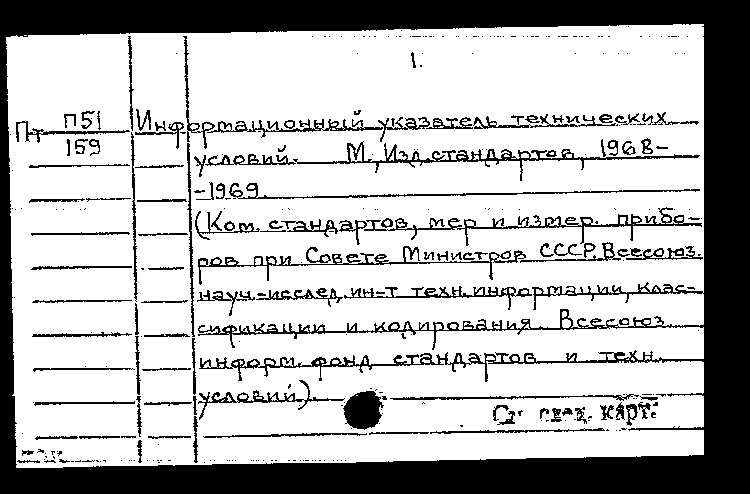 1.
Пт П51/159 Информационный указатель технических
условий. М., Изд. стандартов, 1968-
-1969.
(Ком. стандартов, мер и измер. прибо-
ров при Совете Министров СССР. Всесоюз.
науч.-исслед. ин-т техн. информации, клас-
сификации и кодирования. Всесоюз.
информ. фонд стандартов и техн.
условий).
См. след. карт.